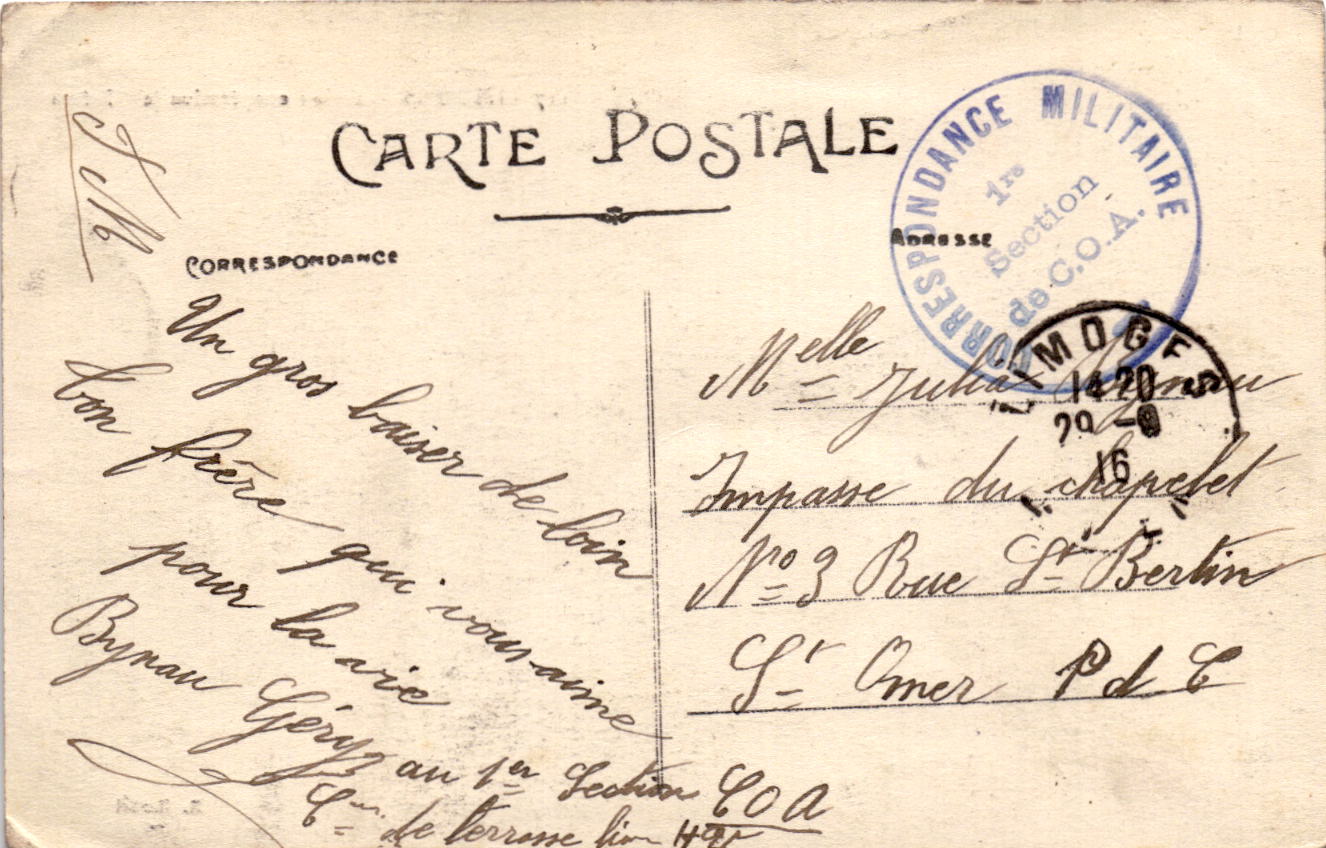 CARTE POSTALE
F M
CORRESPONDANCE
ADRESSE
CORRESPONDANCE MILITAIRE
1re
Section
de C.O.A.
LIMOGES
14 20
29 - 8
16
Un gros baiser de loin
bon frère qui vous aime
pour la vie
Bynau Géry
au 1er Section COA
Cie de
Melle Julia Bynau
Impasse du chapelet
No 3 Rue St Bertin
St Omer P d C